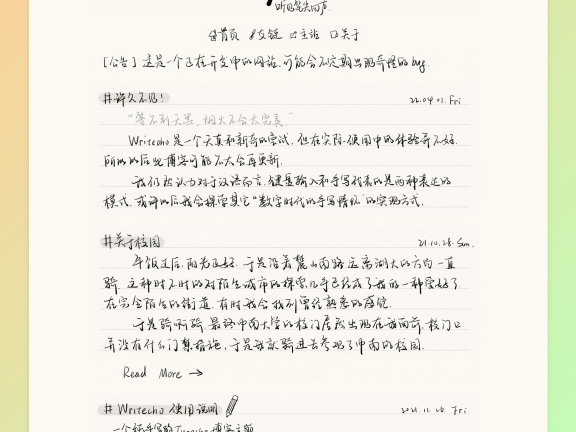 听见笔尖回声
首页 友链 主站 关于
[公告] 这是一个正在开发中的网站，可能会不定期出现奇怪的bug.
#许久不见! 22.04.01. Fri
"等不到天黑，烟火不会太完美"
Writecho是一个天真和新奇的尝试，但在实际使用中的体验并不好.
所以以后此博客可能不太会再更新.
我仍然认为对于汉语而言，键盘输入和手写代表的是两种表达的
模式，或许以后我会探索其它"数字时代的手写情怀"的实现方式.
#关于校园 21.10.28. Sun.
午饭过后，阳光正好，于是沿着麓山南路这离湖大的方向一直
骑. 这种时不时的对陌生城市的探索几乎已经成了我的一种爱好了
在完全陌生的街道，有时我会找到曾经熟悉的感觉.
于是骑呀骑，最终中南大学的校门居然出现在我面前，校门口
并没有什么门禁措施，于是我就骑进去参观了中南的校园.
Read More →
# Writecho 使用说明 2021.11.26. Fri
一个纯手写的Typecho博客主题